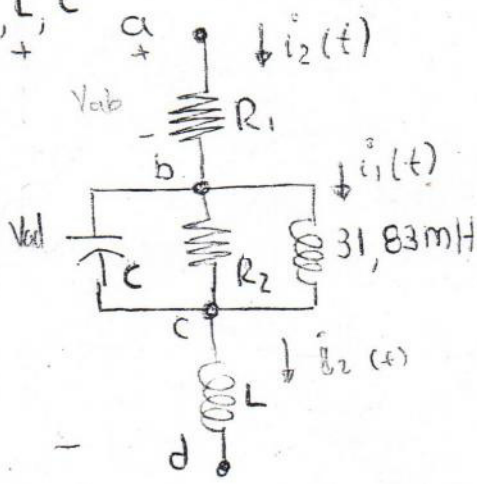 , L, C
+
a
+
i₂(t)
Vab
-
R₁
b
i₁(t)
Vad
C
R₂
31,83mH
c
i₂(t)
L
-
d